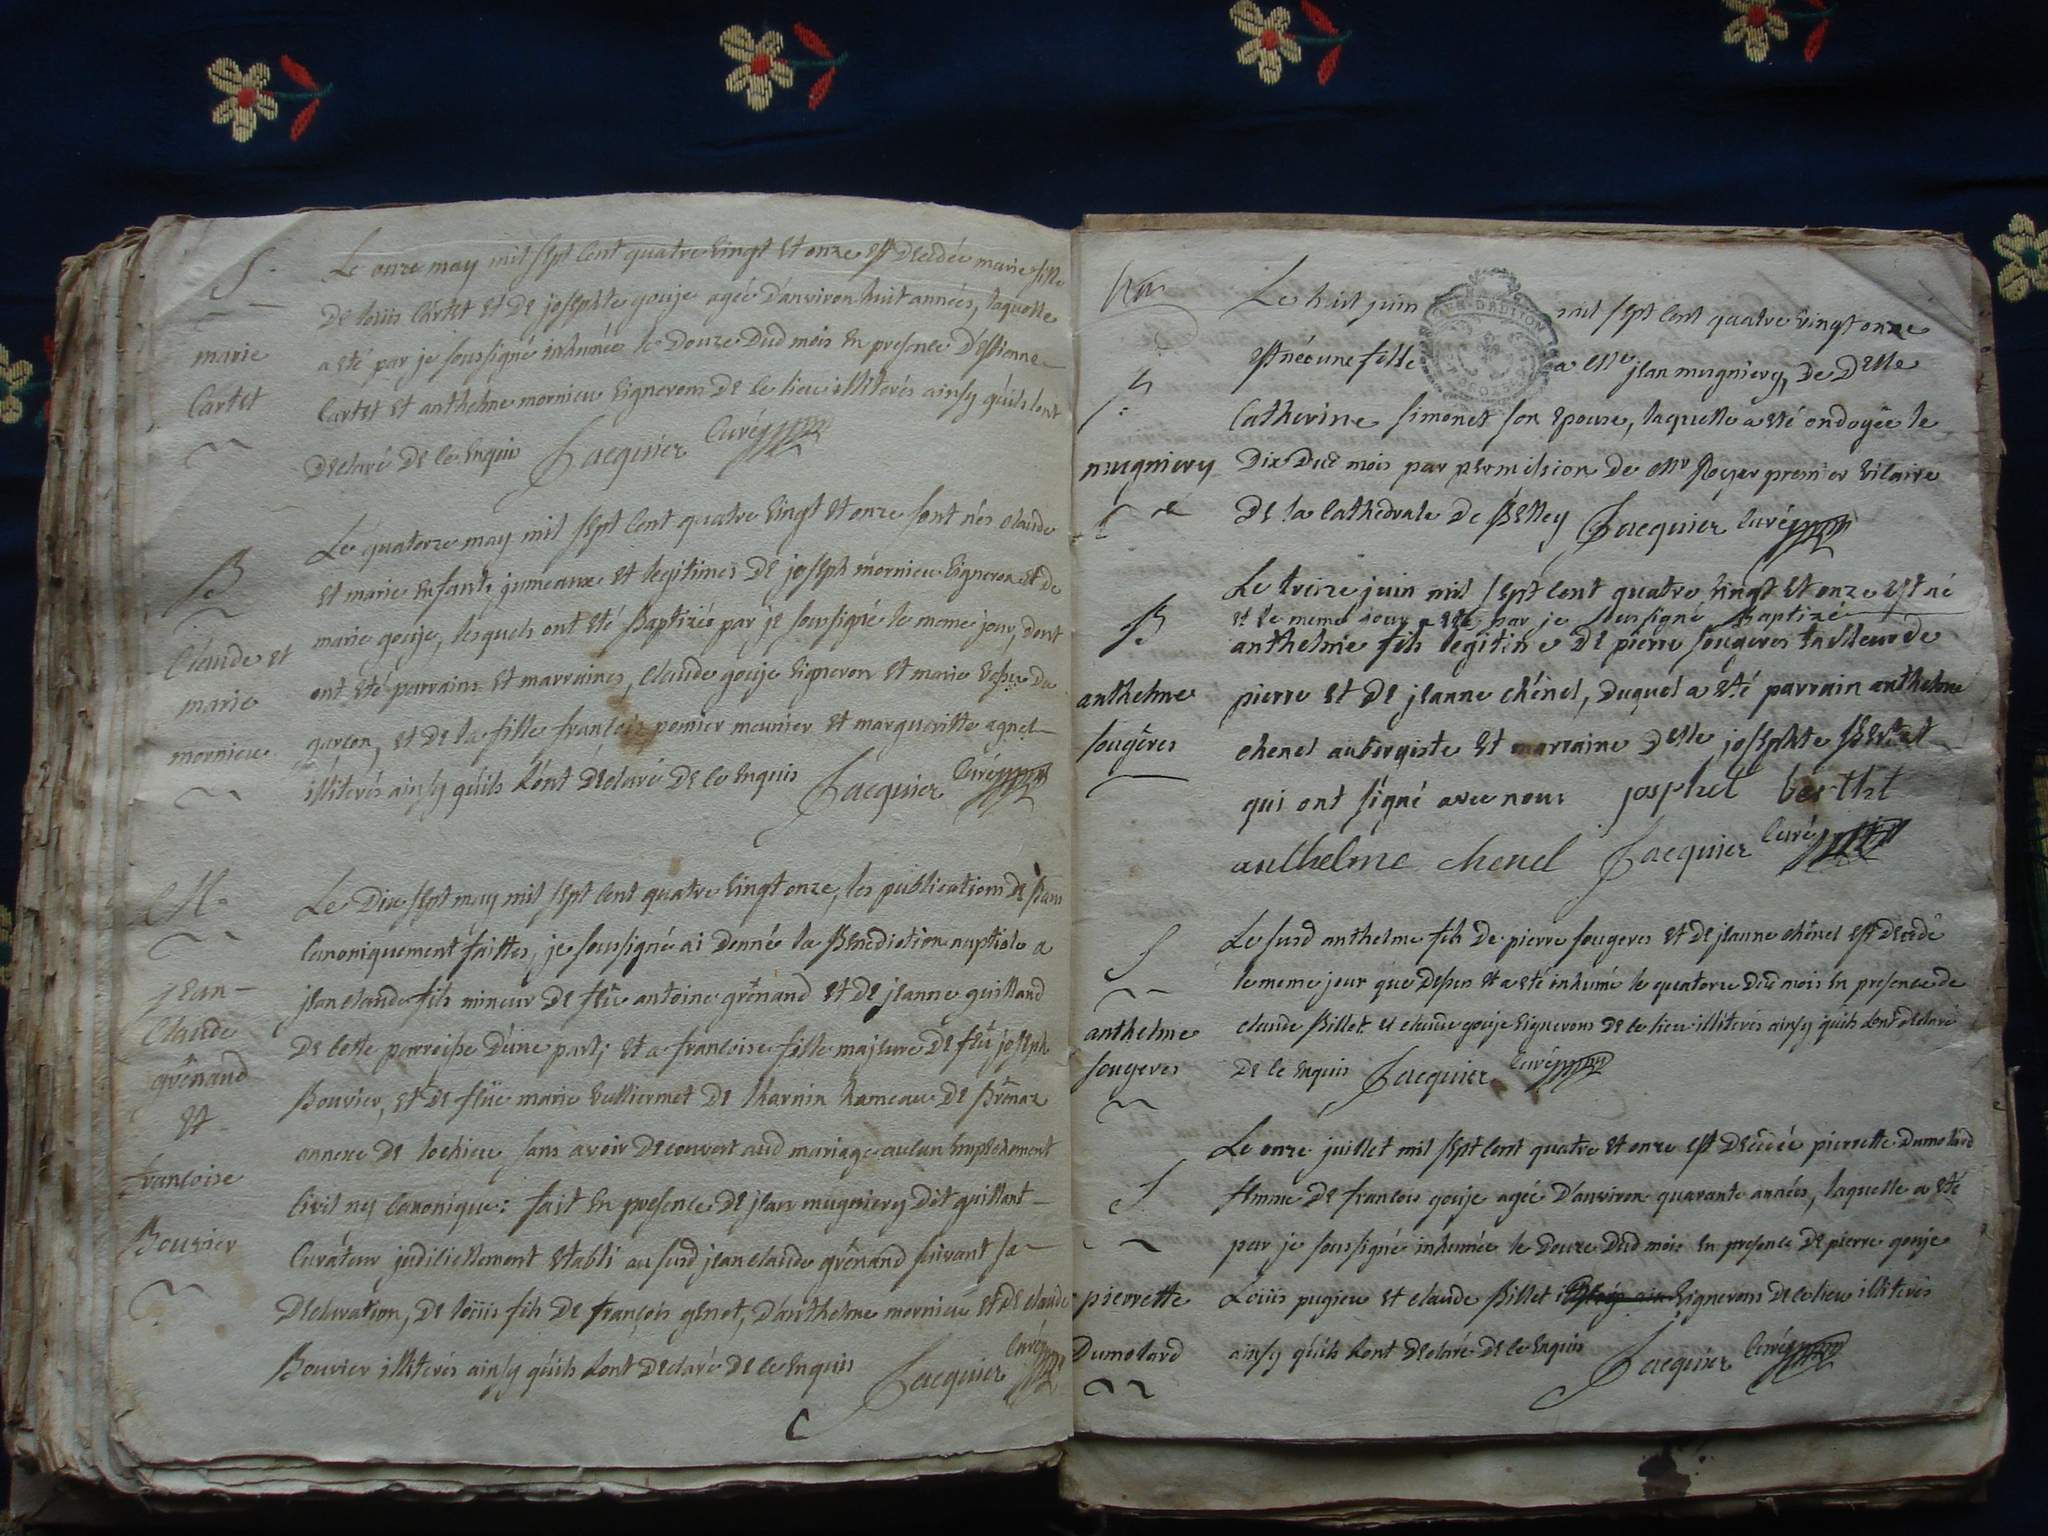 S.
marie
Cartet
Le onze may mil sept cent quatre vingt et onze est decedée marie fille
de loüis Cartet et de josephte gouje agée d'anviron huit années, laquelle
a eté par je soussigné inhumée le douze dud mois en presence d'estienne
Cartet et anthelme mornieu vignerons de ce lieu illiterés ainsy qu'ils l'ont
declaré de ce enquis Jacquier Curé
B
Claude et
marie
mornieu
Le quatorze may mil sept cent quatre vingt et onze sont nés claude
et marie enfants jumeaux et legitimes de joseph mornieu vigneron et de
marie gouje, lesquels ont eté Baptizés par je soussigné le meme jour, dont
ont été parrains et marraines, Claude gouje vigneron et marie du
garçon, et de la fille françois pernier meunier et margueritte agnel
illiterés ainsy qu'ils l'ont declaré de ce enquis Jacquier Curé
M.
jean
Claude
grênand
et
francoise
Bouvier
Le dix sept may mil sept cent quatre vingt onze, les publications de Bans
Canoniquement faittes, je soussigné ai donné la Benediction nuptiale a
jean claude fils mineur de feû antoine grênand et de jeanne guilland
de cette parroisse d'une part; et a francoise fille majeure de feû joseph
Bouvier, et de feüe marie vulliermet de tharnin hameau de Brênaz
annexe de lochieu sans avoir decouvert aud mariage aucun empechement
Civil ny Canonique: fait en presence de jean mugniery dit guillant
Curateur judiciellement etabli au susd jean claude grênand suivant sa
declaration, de loüis fils de françois genet, d'anthelme mornieu et de claude
Bouvier illiterés ainsy qu'ils l'ont declaré de ce enquis Jacquier Curé
mugniery
Le huit juin mil sept cent quatre vingt onze
est née une fille a Mre jean mugniery, de delle
Catherine simonet son epouse, laquelle a eté ondoyée le
dix dud mois par permission de Mr Royer premier vicaire
de la Cathedrale de Belley Jacquier Curé
B.
anthelme
fougêres
Le treize juin mil sept cent quatre vingt et onze est né
et le meme jour a eté par je soussigné Baptizé
anthelme fils legitime de pierre fougeres tailleur de
pierre et de jeanne chênel, duquel a eté parrain anthelme
chenel aubergiste et marraine delle josephte Berthet
qui ont signé avec nous josphet berthet
anthelme chenel Jacquier Curé
S
anthelme
fougeres
Le susd anthelme fils de pierre fougeres et de jeanne chênel est decedé
le meme jour que dessus et a eté inhumé le quatorze dud mois en presence de
claude Billet et claude gouje vignerons de ce lieu illiterés ainsy qu'ils l'ont declaré
de ce enquis Jacquier Curé
S.
pierrette
Dumolard
Le onze juillet mil sept cent quatre et onze est decedée pierrette Dumolard
femme de francois gouje agée d'anviron quarante années, laquelle a eté
par je soussigné inhumée le douze dud mois en presence de pierre gouje
Loüis pugieu et claude Billet vignerons de ce lieu illiterés
ainsy qu'ils l'ont declaré de ce enquis Jacquier Curé